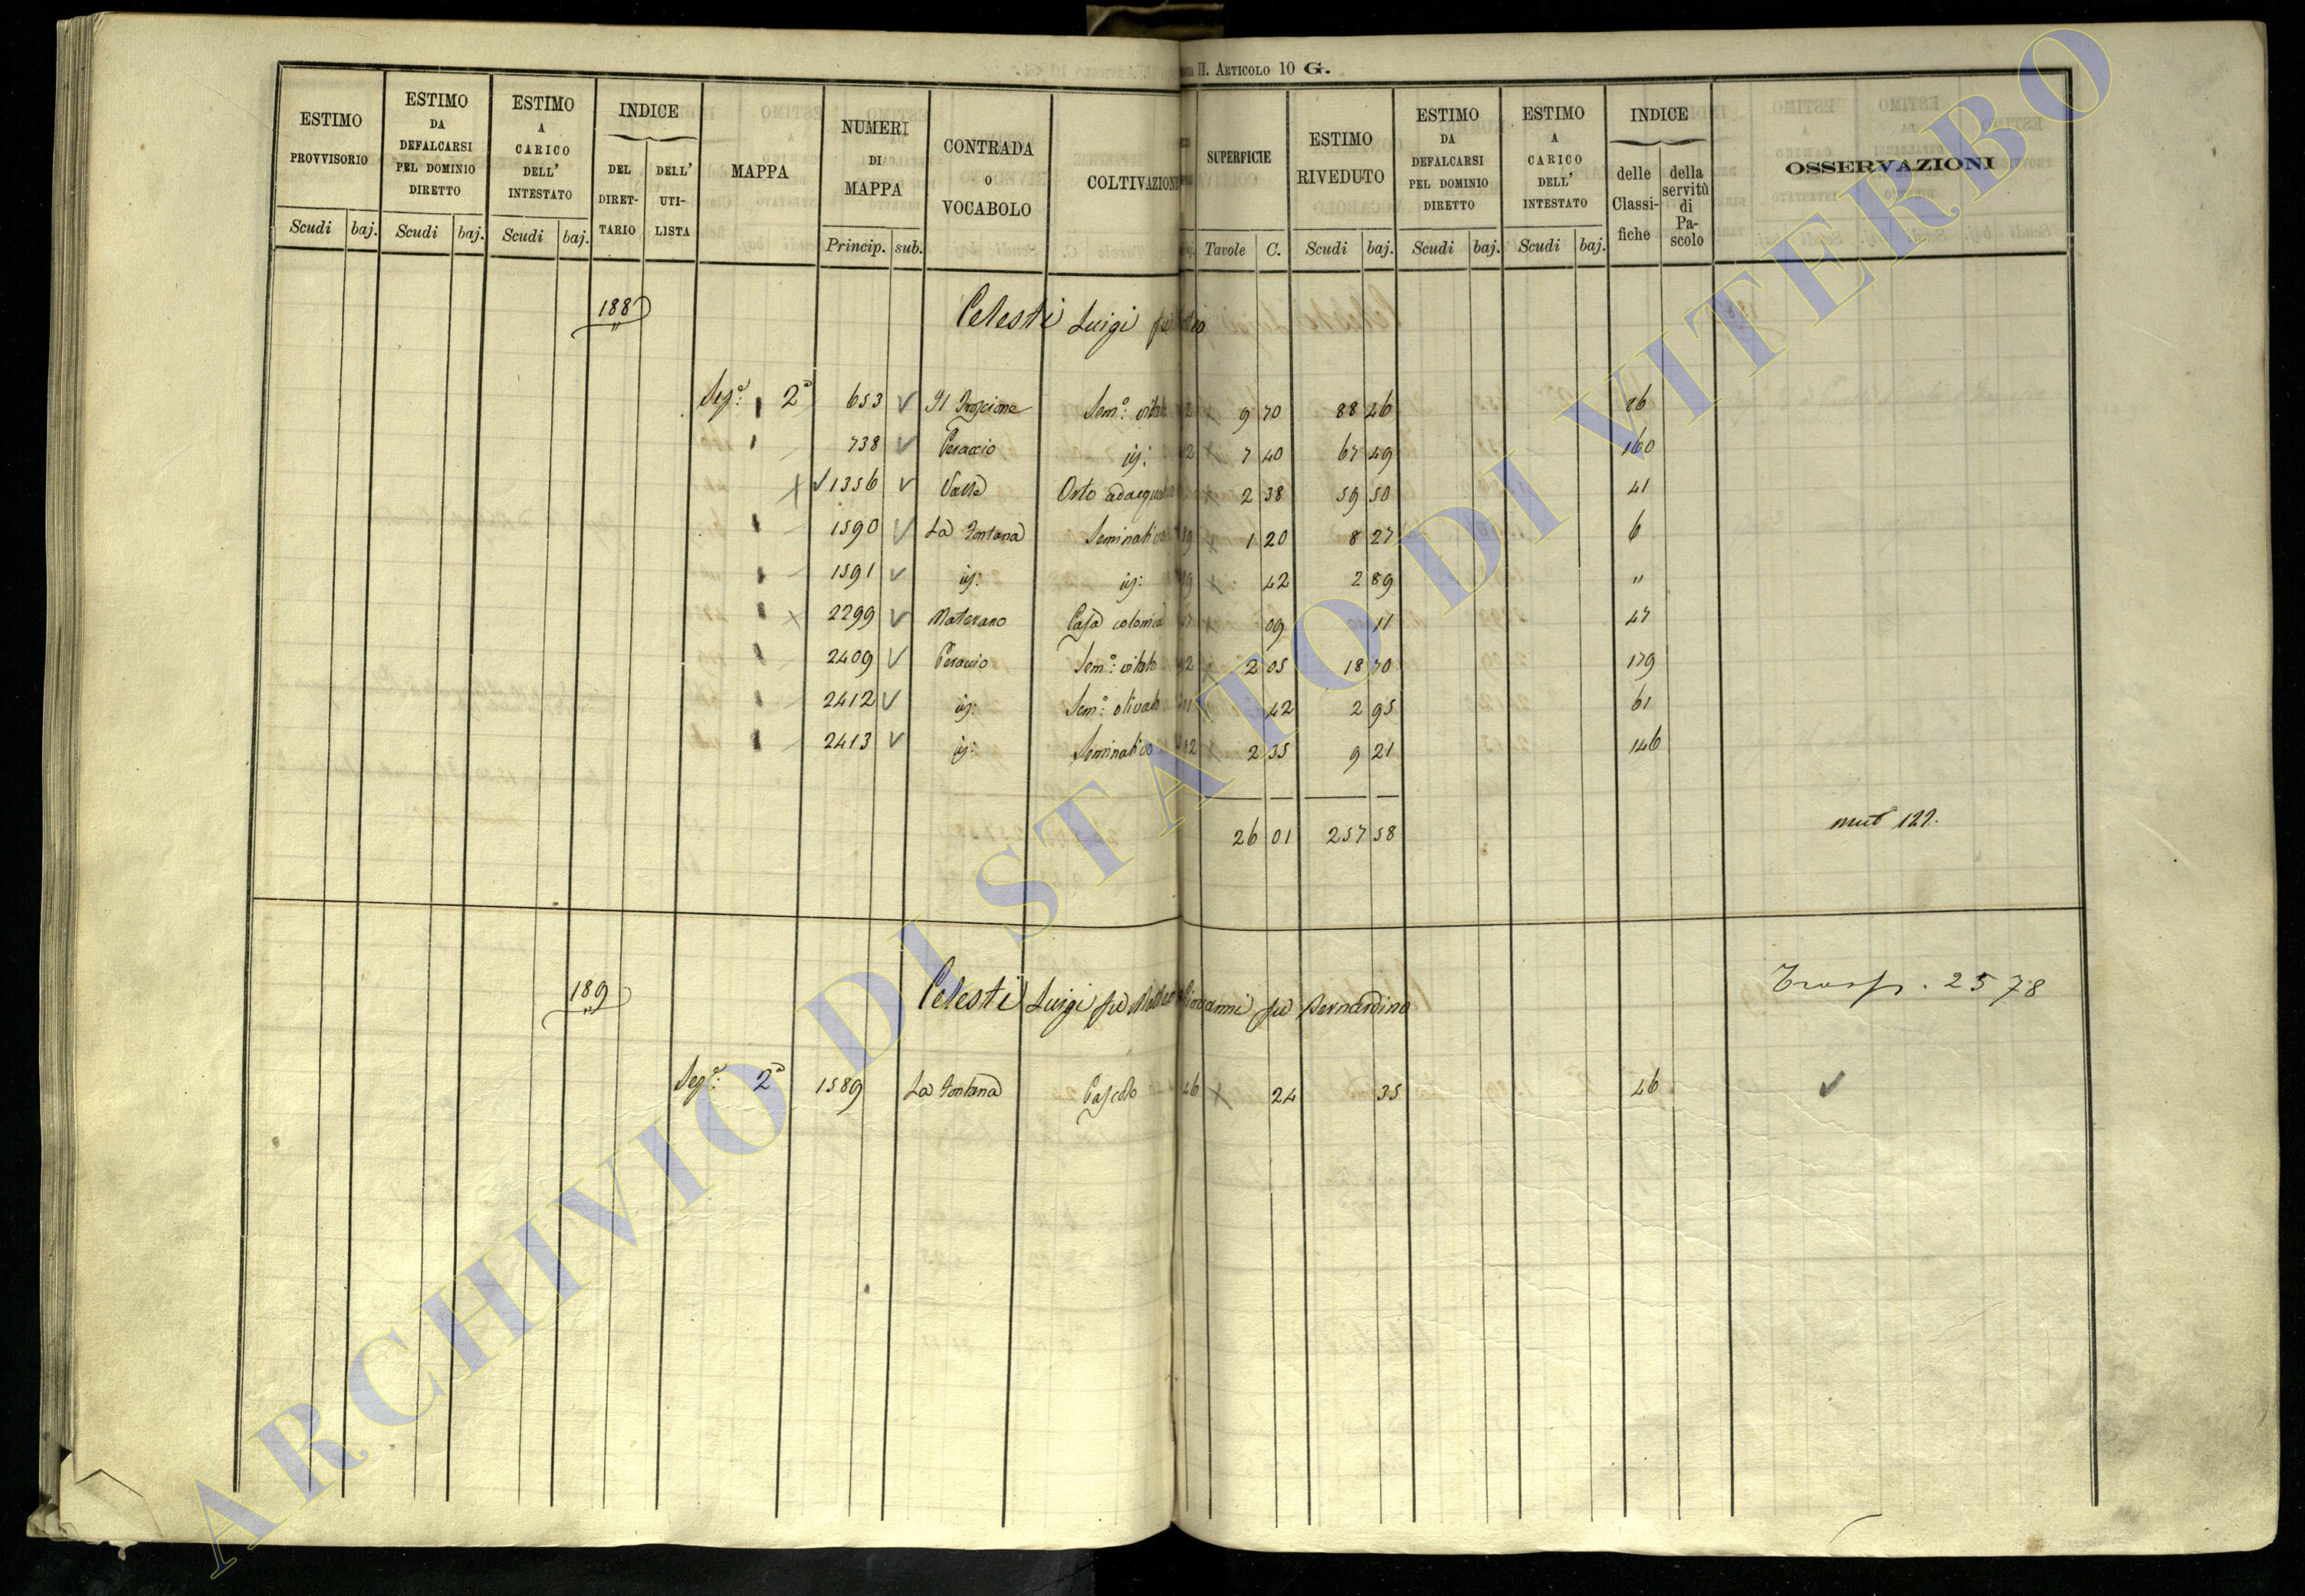 II. ARTICOLO 10 G.
ESTIMO PROVVISORIO Scudi baj. ESTIMO DA DEFALCARSI PEL DOMINIO DIRETTO Scudi baj. ESTIMO A CARICO DELL' INTESTATO Scudi baj. INDICE DEL DIRET-TARIO DELL' UTI-LISTA MAPPA NUMERI DI MAPPA Princip. sub. CONTRADA O VOCABOLO COLTIVAZION SUPERFICIE Tavole C. ESTIMO RIVEDUTO Scudi baj. ESTIMO DA DEFALCARSI PEL DOMINIO DIRETTO Scudi baj. ESTIMO A CARICO DELL' INTESTATO Scudi baj. INDICE delle Classi-fiche della servitù di Pa-scolo OSSERVAZIONI
188 Celesti Luigi fu
Sez.e 2a 653 Il Sem.o vitato 9 70 88 26 86
738 Peraccio id: 7 40 67 49 160
1356 Valle Orto adacqua 2 38 59 50 41
1590 La Fontana Seminativo 1 20 8 27 6
1591 id: id: 42 2 89 "
2299 Materano Casa colonica 09 11 47
2409 Peraccio Sem.o vitato 2 05 18 70 179
2412 id: Sem.o olivato 42 2 95 61
2413 id: Seminativo 2 35 9 21 146
26 01 257 58 mut 122.
189 Celesti Luigi fu Matteo Giovanni fu Bernardino Trasp. 2578
Sez.e 2a 1589 La Fontana Pascolo 46 24 35 46
ARCHIVIO DI STATO DI VITERBO